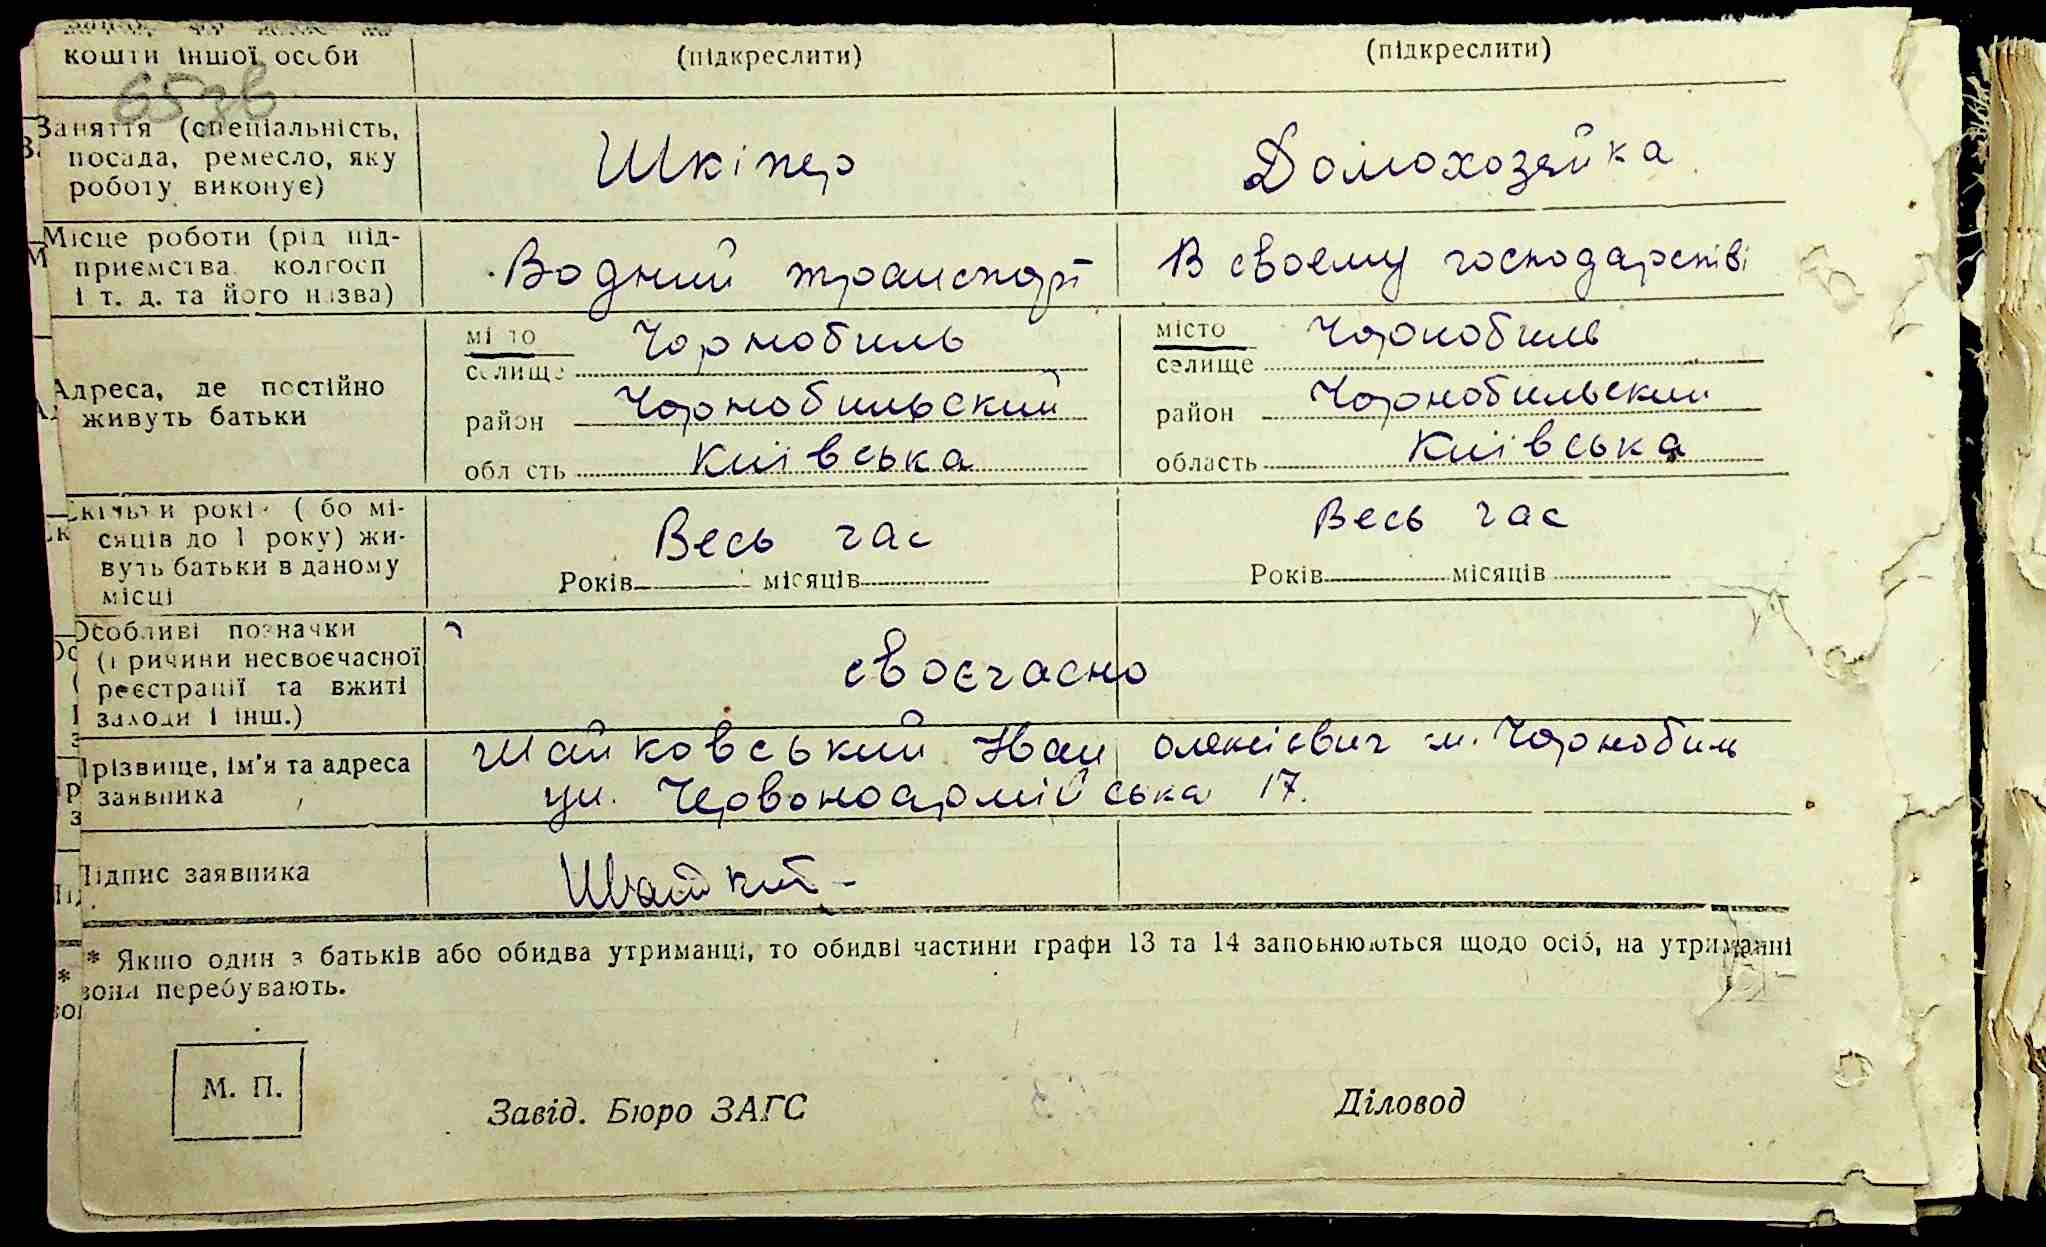 кошти іншої особи (підкреслити) (підкреслити)
65зв
Заняття (спеціальність, посада, ремесло, яку роботу виконує) Шкіпер Домохозяйка
Місце роботи (рід підприємства колгосп і т. д. та його назва) Водний транспорт В своему господарстві
Адреса, де постійно живуть батьки
місто Чорнобиль місто Чорнобиль
селище селище
район Чорнобильский район Чорнобильский
область Київська область Київська
Скільки років (або місяців до 1 року) живуть батьки в даному місці Весь час Весь час
Років місяців Років місяців
Особливі позначки (причини несвоєчасної реєстрації та вжиті заходи і інш.) своєчасно
Прізвище, ім'я та адреса заявника Шайковський Иван олексієвич м. Чорнобиль
ул. Червоноармійська 17.
Підпис заявника
* Якщо один з батьків або обидва утриманці, то обидві частини графи 13 та 14 заповнюються щодо осіб, на утриманні
вони перебувають.
М. П.
Завід. Бюро ЗАГС Діловод